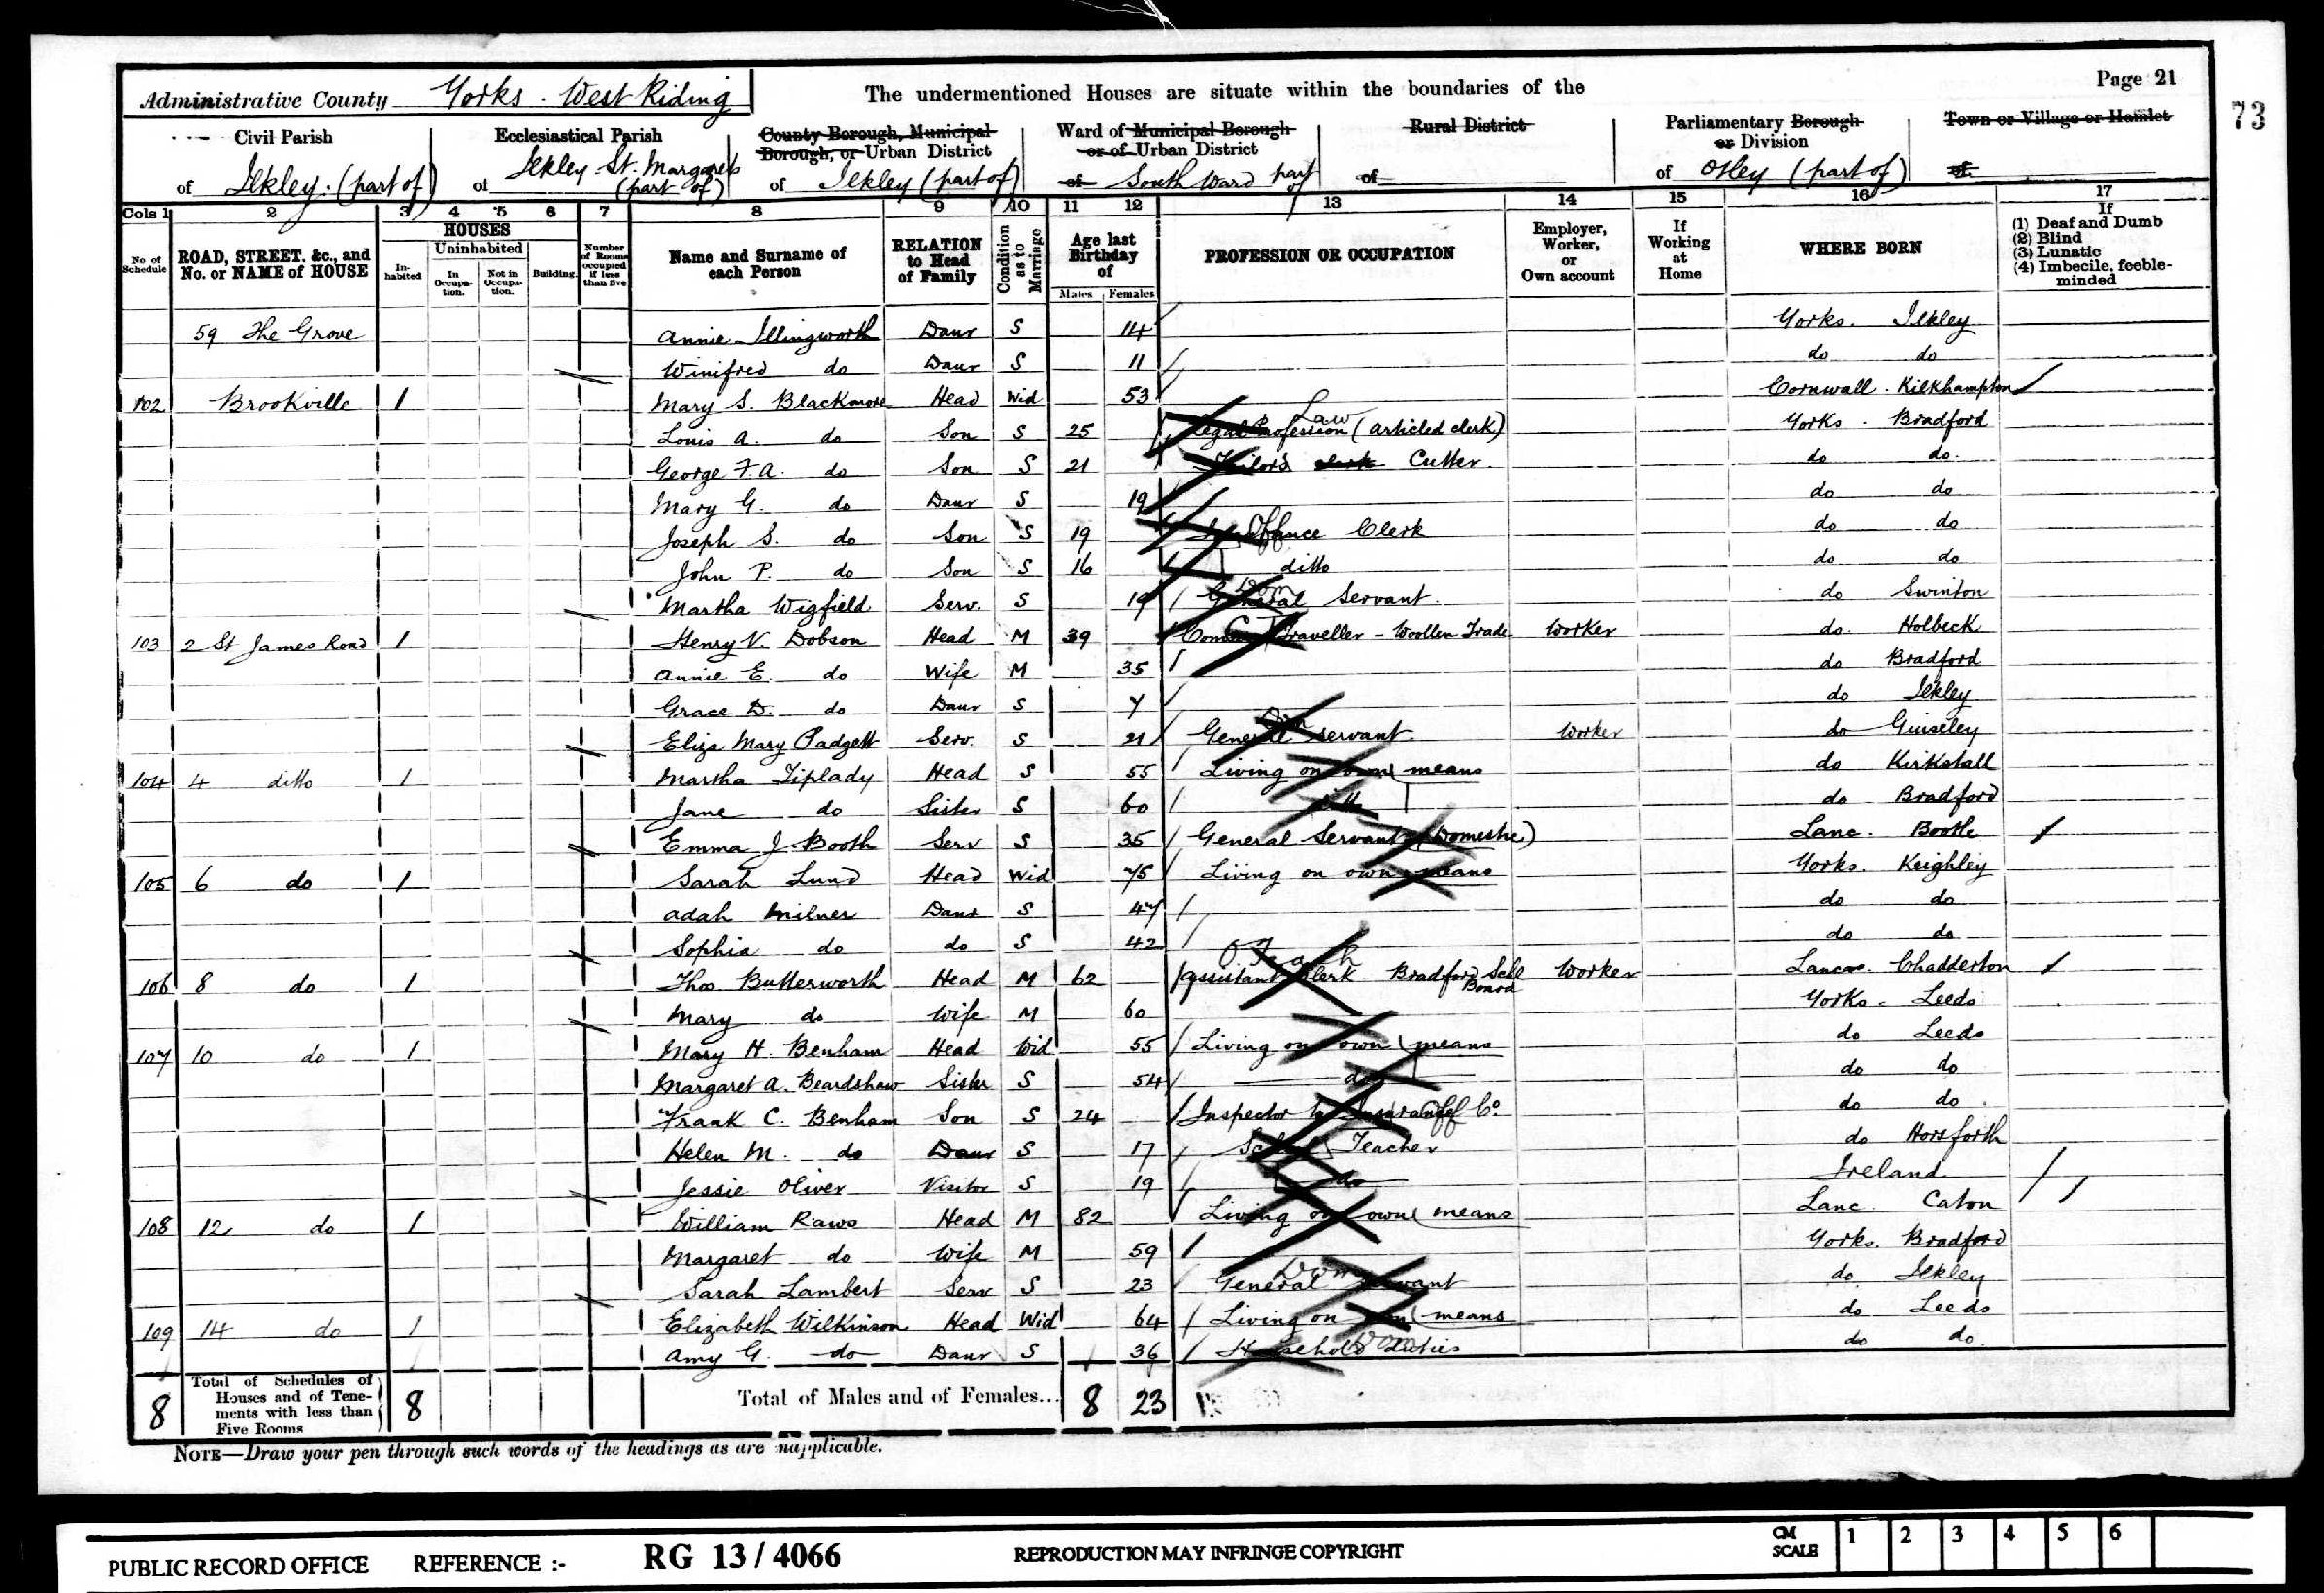 Page 21
73
Administrative County Yorks. West Riding
The undermentioned Houses are situate within the boundaries of the
Civil Parish
of Ilkley. (part of)
Ecclesiastical Parish
of Ilkley St. Margarets (part of)
County Borough, Municipal Borough, or Urban District
of Ilkley (part of)
Ward of Municipal Borough or of Urban District
of South Ward part of
Rural District
of
Parliamentary Borough or Division
of Otley (part of)
Town or Village or Hamlet
of
Cols 1 2 3 4 5 6 7 8 9 10 11 12 13 14 15 16 17
No. of Schedule
ROAD, STREET, &c., and No. or NAME of HOUSE
HOUSES
Inhabited
Uninhabited
In Occupation.
Not in Occupation.
Building.
Number of Rooms occupied if less than five
Name and Surname of each Person
RELATION to Head of Family
Condition as to Marriage
Age last Birthday of
Males Females
PROFESSION OR OCCUPATION
Employer, Worker, or Own account
If Working at Home
WHERE BORN
If
(1) Deaf and Dumb
(2) Blind
(3) Lunatic
(4) Imbecile, feeble-minded
59 The Grove Annie Illingworth Daur S 14 Yorks. Ilkley
Winifred do Daur S 11 do do
102 Brookville 1 Mary S. Blackmore Head Wid 53 Cornwall. Kilkhampton
Louis A. do Son S 25 Legal Profession Law (Articled clerk) Yorks. Bradford
George F. A. do Son S 21 Tailors clerk Cutter do do
Mary G. do Daur S 19 do do
Joseph S. do Son S 19 Clerk do do
John P. do Son S 16 ditto do do
Martha Wigfield Serv. S 19 General Servant. Dom do Swinton
103 2 St James Road 1 Henry V. Dobson Head M 39 Traveller - Woollen Trade Worker do Holbeck
Annie E. do Wife M 35 do Bradford
Grace D. do Daur S 7 do Ilkley
Eliza Mary Padgett Serv. S 21 General servant. Dom Worker do Guiseley
104 4 ditto 1 Martha Tiplady Head S 55 Living on own means do Kirkstall
Jane do Sister S 60 ditto do Bradford
Emma J. Booth Serv S 35 General Servant (Domestic) Lanc. Bootle
105 6 do 1 Sarah Lund Head Wid 75 Living on own means Yorks. Keighley
Adah Milner Daur S 47 do do
Sophia do do S 42 do do
106 8 do 1 Thos Butterworth Head M 62 Assistant Clerk - Bradford Schl Board Worker Lancs. Chadderton
Mary do Wife M 60 Yorks - Leeds
107 10 do 1 Mary H. Benham Head Wid 55 Living on own means do Leeds
Margaret A. Beardshaw Sister S 54 do do do
Frank C. Benham Son S 24 Inspector to Insurance Co. do do
Helen M. do Daur S 17 School Teacher do Horsforth
Jessie Oliver Visitor S 19 do Ireland
108 12 do 1 William Raws Head M 82 Living on own means Lanc. Caton
Margaret do Wife M 59 Yorks. Bradford
Sarah Lambert Serv S 23 General Servant Dom do Ilkley
109 14 do 1 Elizabeth Wilkinson Head Wid 64 Living on own means do Leeds
Amy G. do Daur S 36 Household Duties Dom do do
8 Total of Schedules of Houses and of Tenements with less than Five Rooms 8 Total of Males and of Females... 8 23
NOTE—Draw your pen through such words of the headings as are inapplicable.
PUBLIC RECORD OFFICE REFERENCE :- RG 13 / 4066 REPRODUCTION MAY INFRINGE COPYRIGHT CM SCALE 1 2 3 4 5 6